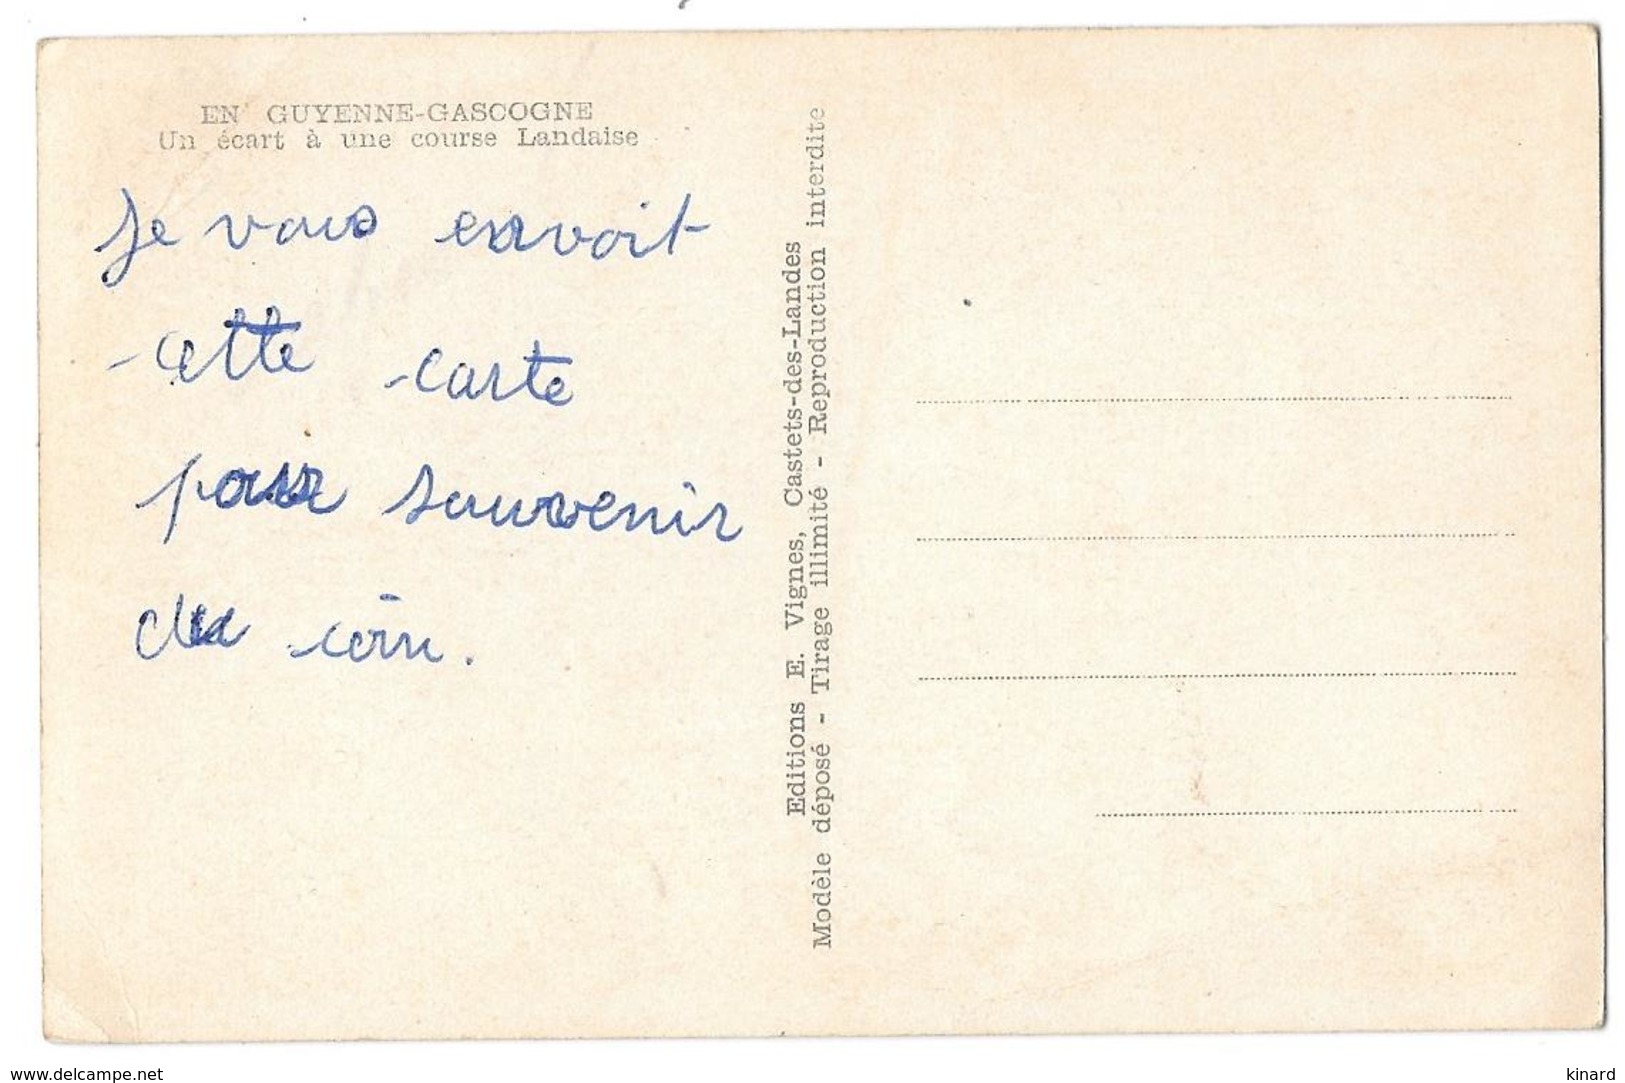 EN GUYENNE-GASCOGNE
Un écart à une course Landaise
Je vous envoit
cette carte
pour souvenir
du coin.
Editions E. Vignes, Castets-des-Landes
Modèle déposé - Tirage illimité - Reproduction interdite
www.delcampe.net
kinard